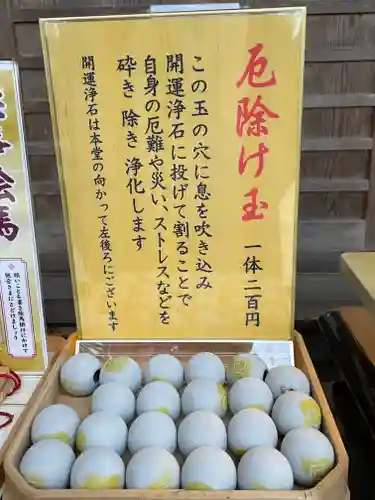 厄除け玉
一体二百円
この玉の穴に息を吹き込み
開運浄石に投げて割ることで
自身の厄難や災い、ストレスなどを
砕き 除き 浄化します
開運浄石は本堂の向かって左後ろにございます